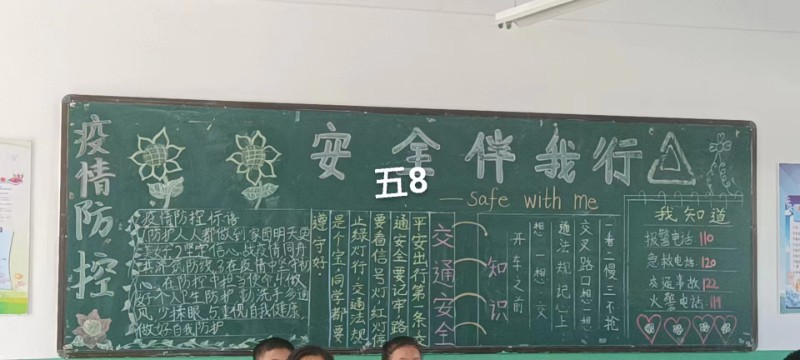 疫情防控
安全伴我行
五8
—safe with me
疫情防控标语
防护人人都做到家园明天更
美好2坚定信心战疫情同舟
心在防控
好个人卫生防护 勤洗手多通
风少揉眼与重视自我健康
做好自我防护
平安出行第一条交
通安全要记牢路
要看信号灯红灯停
止绿灯行交通法规
是个宝同学都要
遵守好
交通安全
知识
一看二慢三不抢
交叉路口想一想
通法规记心上
想一想交
开车之前
我知道
报警电话110
急救电话120
交通事故122
火警电话119